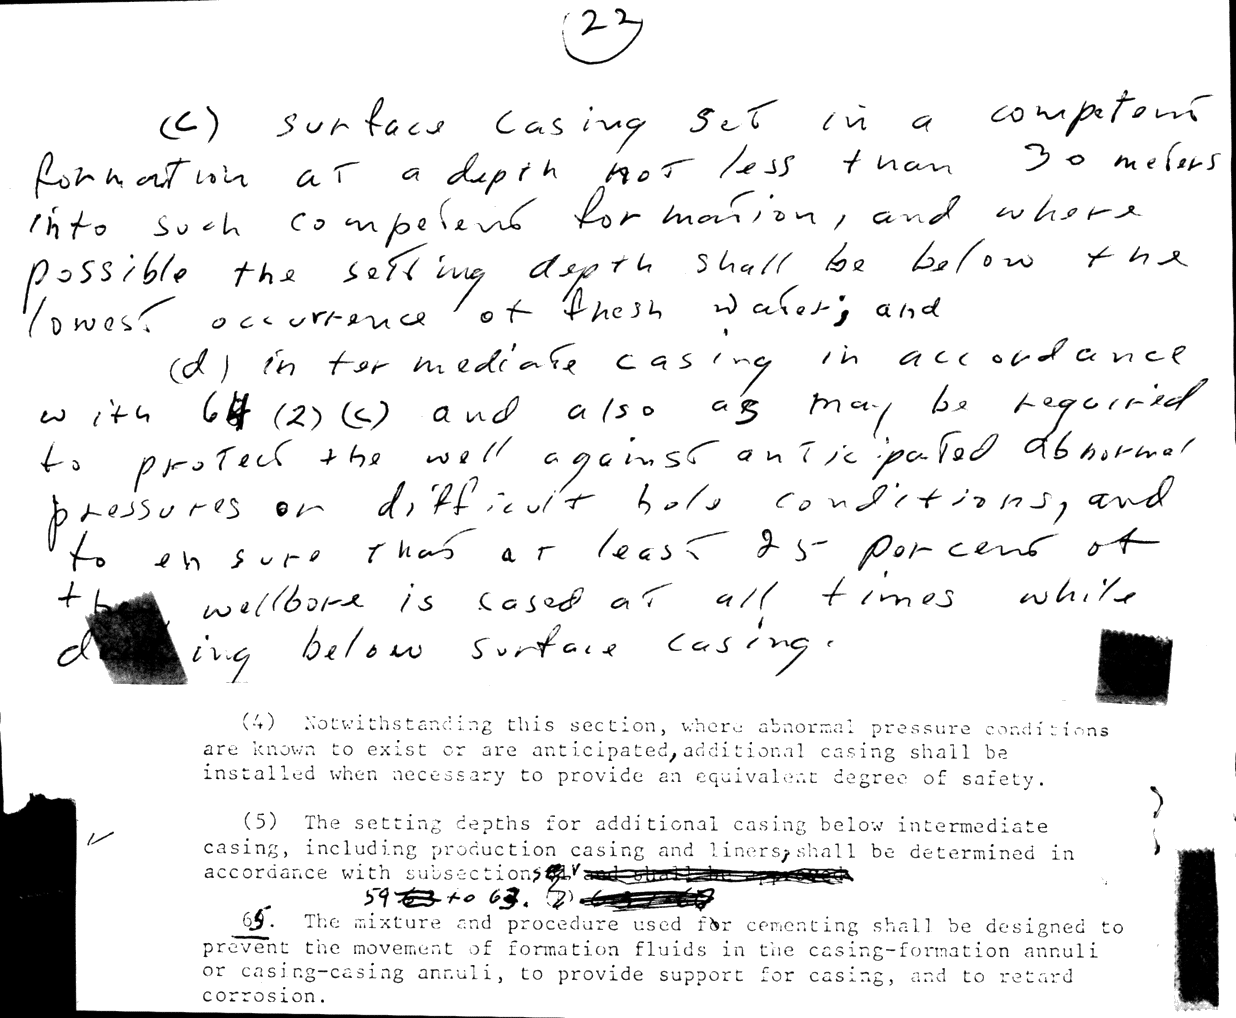 22
(c) surface casing set in a competent
formation at a depth not less than 30 meters
into such competent formation, and where
possible the setting depth shall be below the
lowest occurrence of fresh water; and
(d) intermediate casing in accordance
with 64 (2) (c) and also as may be required
to protect the well against anticipated abnormal
pressures or difficult hole conditions, and
to ensure that at least 25 percent of
the wellbore is cased at all times while
d ing below surface casing.
(4) Notwithstanding this section, where abnormal pressure conditions
are known to exist or are anticipated, additional casing shall be
installed when necessary to provide an equivalent degree of safety.
(5) The setting depths for additional casing below intermediate
casing, including production casing and liners, shall be determined in
accordance with subsections
59 to 63.
65. The mixture and procedure used for cementing shall be designed to
prevent the movement of formation fluids in the casing-formation annuli
or casing-casing annuli, to provide support for casing, and to retard
corrosion.